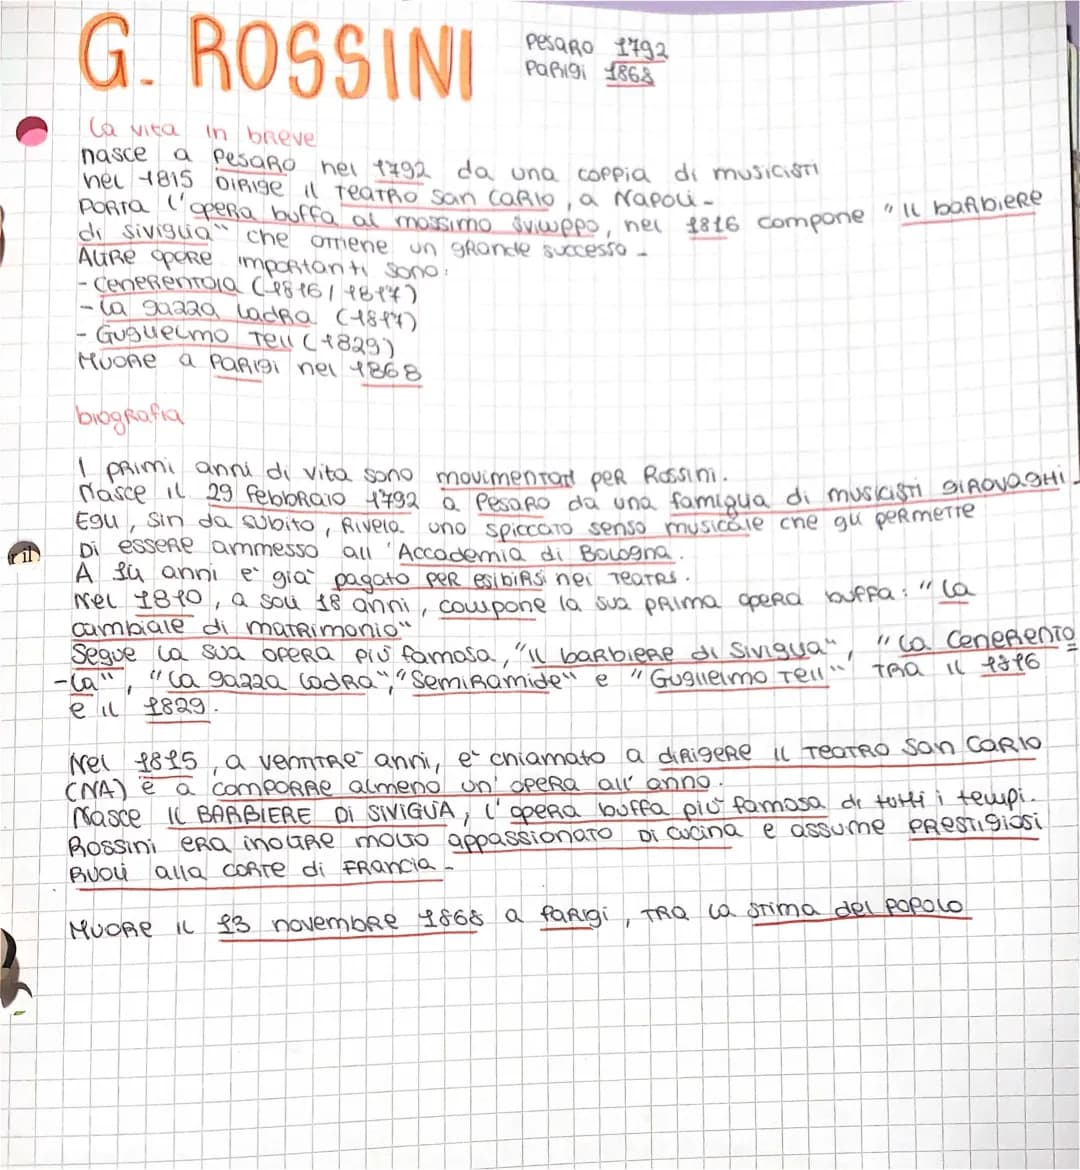 G. ROSSINI
Pesaro 1792
Parigi 1868
La vita in breve
nasce a Pesaro nel 1792 da una coppia di musicisti
nel 1815 dirige il Teatro San Carlo, a Napoli-
Porta l'opera buffa al massimo sviluppo, nel 1816 compone "Il barbiere
di Siviglia" che ottiene un grande successo-
Altre opere importanti sono:
- Cenerentola (1816/1817)
- La gazza ladra (1817)
- Guglielmo Tell (1829)
Muore a Parigi nel 1868
biografia
I primi anni di vita sono movimentati per Rossini.
Nasce il 29 febbraio 1792 a Pesaro da una famiglia di musicisti girovaghi.
Egli, sin da subito, rivela uno spiccato senso musicale che gli permette
Di essere ammesso all'Accademia di Bologna.
A 14 anni e' gia' pagato per esibirsi nei teatri.
Nel 1810, a soli 18 anni, compone la sua prima opera buffa: "La
cambiale di matrimonio"
Segue la sua opera più famosa, "Il barbiere di Siviglia", "La Cenerento
-la", "La gazza ladra", "Semiramide" e "Guglielmo Tell" TRA il 1816
e il 1829.
Nel 1815, a ventitré anni, e' chiamato a dirigere il Teatro San Carlo
(NA) e a comporre almeno un'opera all'anno.
Nasce IL BARBIERE DI SIVIGLIA, l'opera buffa più famosa di tutti i tempi.
Rossini era inoltre molto appassionato di cucina e assume prestigiosi
Ruoli alla corte di Francia-
Muore il 13 novembre 1868 a Parigi, tra la stima del popolo